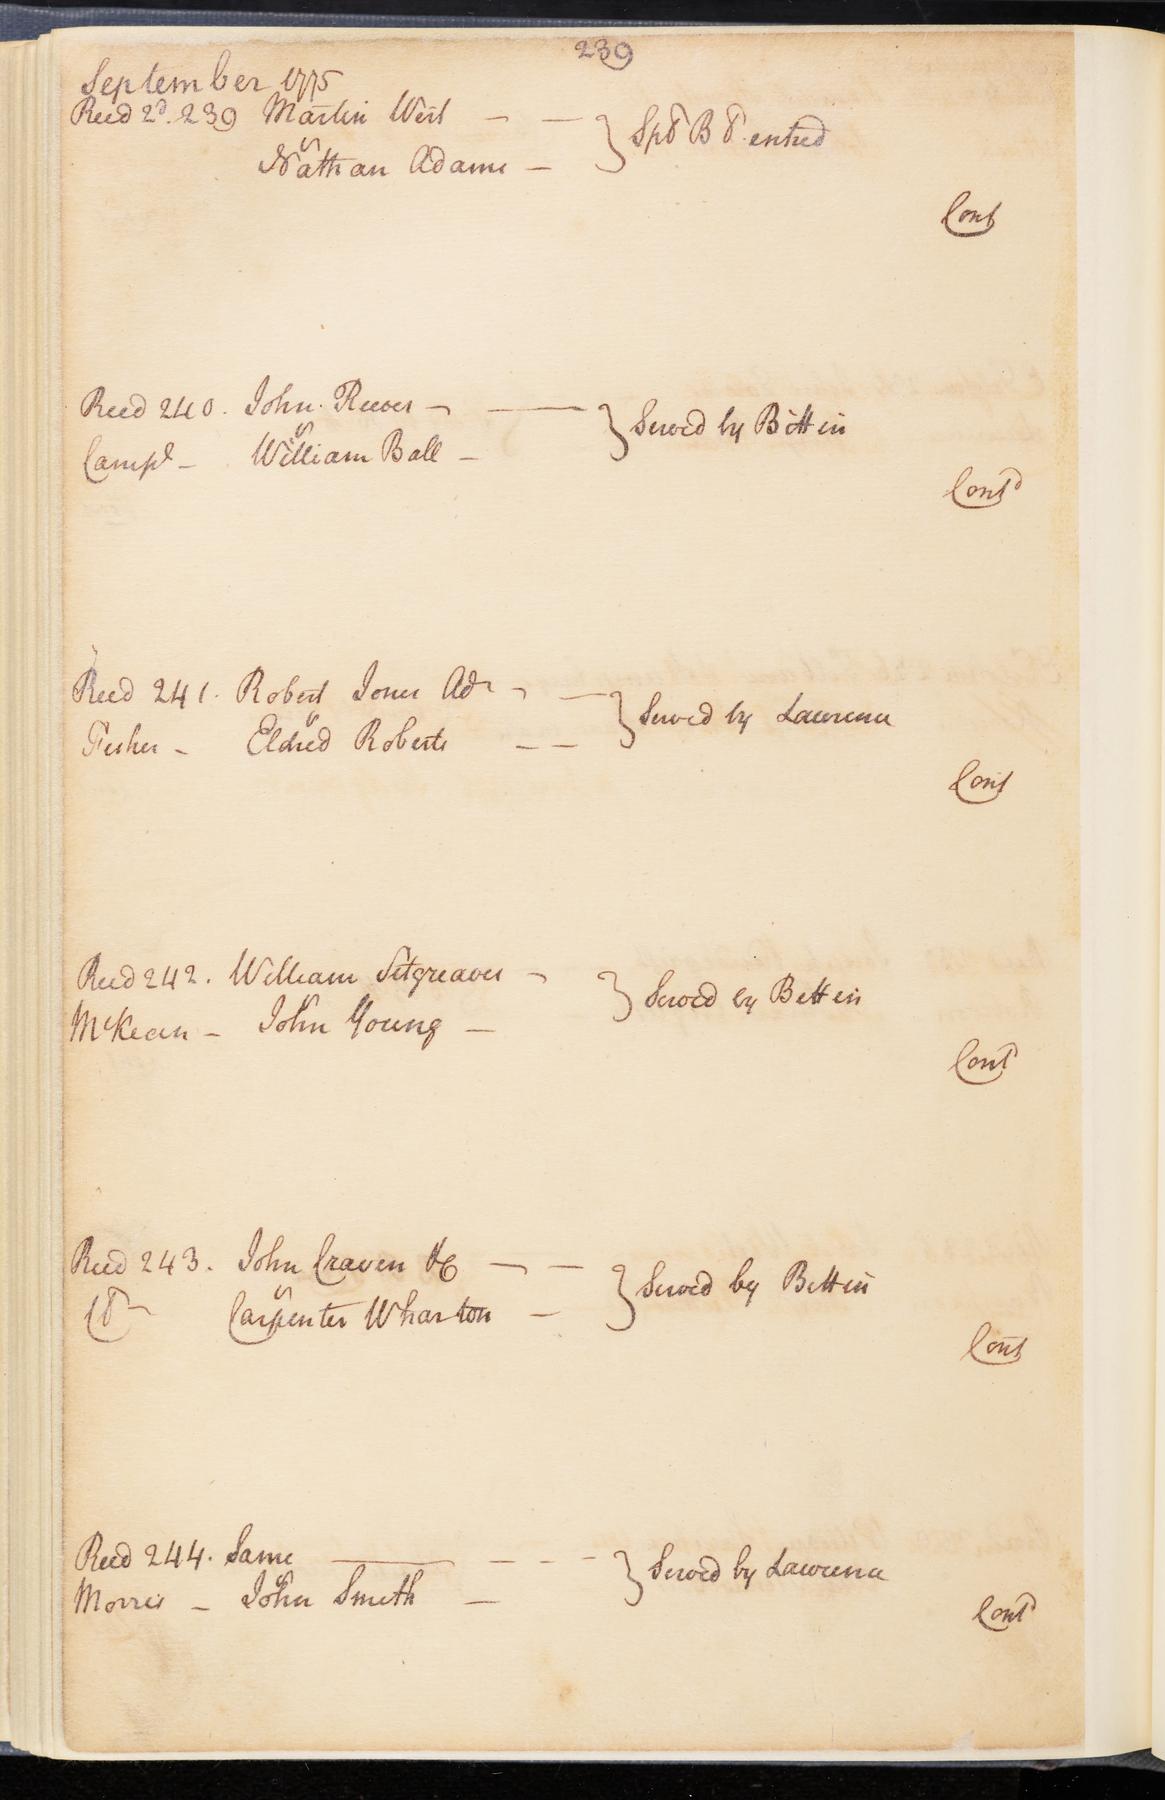 239
September 1775
Reed 2d. 239 Martin West — — } Spd B d. entred
vs
Nathan Adams —
Cont
Reed 240. John Reeves — — } Served by Bettin
vs
Campl — William Ball —
Contd
Reed 241. Robert Jones Adr — — } Served by Lawrence
vs
Fisher — Eldred Roberts — —
Cont
Reed 242. William Sitgreaves — } Served by Bettin
vs
McKean — John Young —
Contd
Reed 243. John Craven &c — — } Served by Bettin
vs
Carpenter Wharton —
Cont
Reed 244. Same — — - - } Served by Lawrence
vs
Morris — John Smith —
Contd